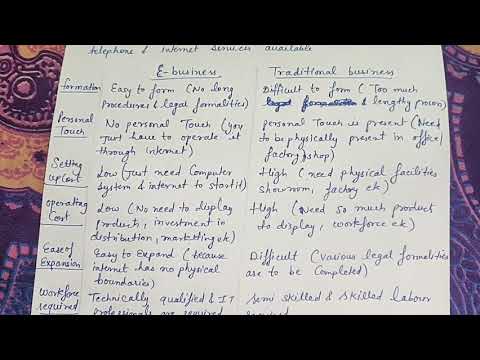 telephone & internet services available
E-business Traditional business
formation Easy to form (No long Difficult to form (Too much
procedures & legal formalities) & lengthy process)
Personal Touch No personal Touch (you personal Touch is present (Need
just have to operate it to be physically present in office/
through internet) factory/shop)
Setting up Cost Low (just need Computer High (need physical facilities
system & internet to start it) showroom, factory etc)
operating Cost Low (No need to display High (Need so much product
products, investment in to display, workforce etc)
distribution, marketing etc)
Ease of Expansion Easy to Expand (because Difficult (Various legal formalities
internet has no physical are to be completed)
boundaries)
Workforce required Technically qualified & IT semi skilled & skilled labour
professionals are required